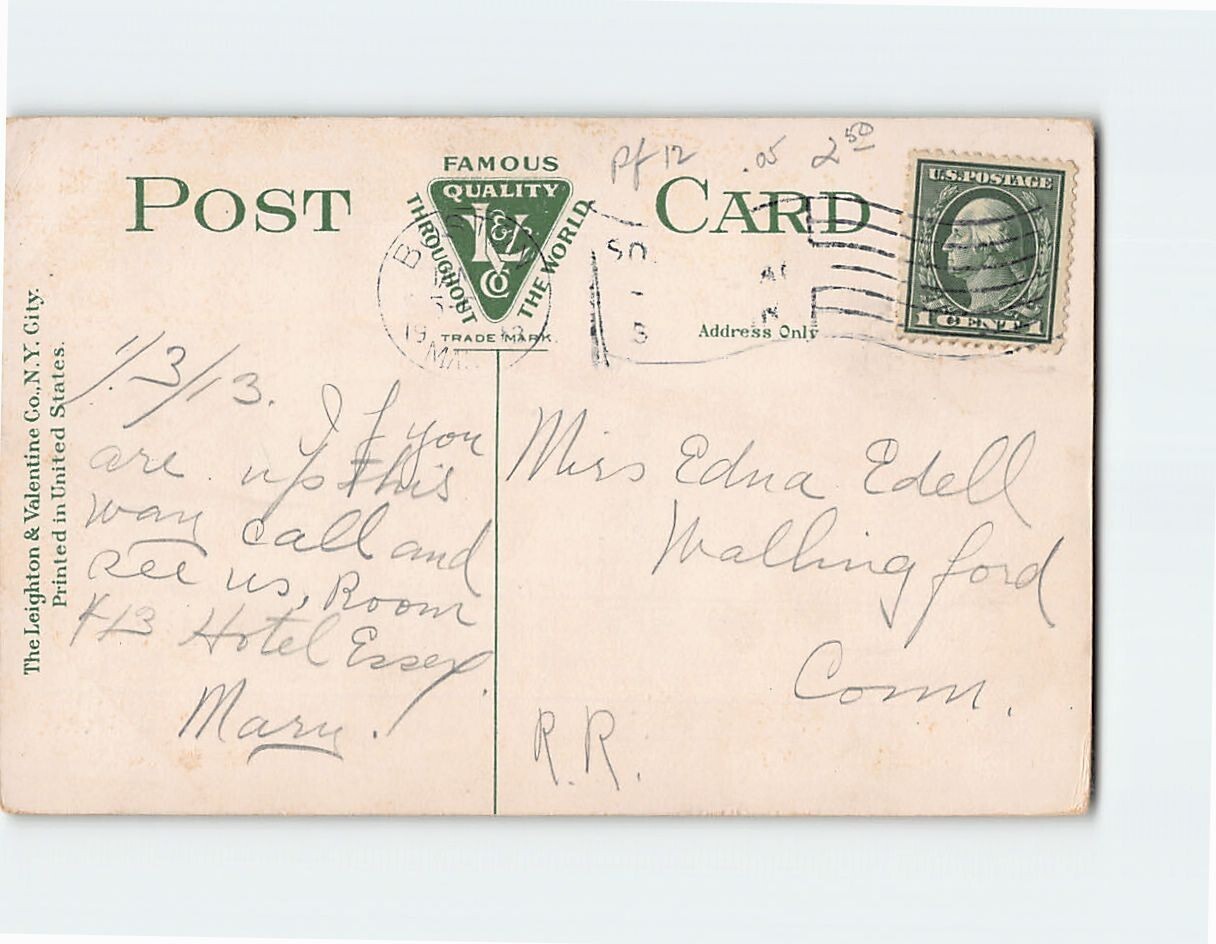 POST CARD
FAMOUS
QUALITY
L&V
CO
THROUGHOUT
THE WORLD
TRADE MARK.
Pf 12 .05 2 50
U.S. POSTAGE
1 CENT 1
Address Only
The Leighton & Valentine Co., N.Y. City.
Printed in United States.
1/3/13.
If you
are up this
way call and
see us, Room
413 Hotel Essex.
Mary.
Miss Edna Edell
Wallingford
Conn.
R.R.